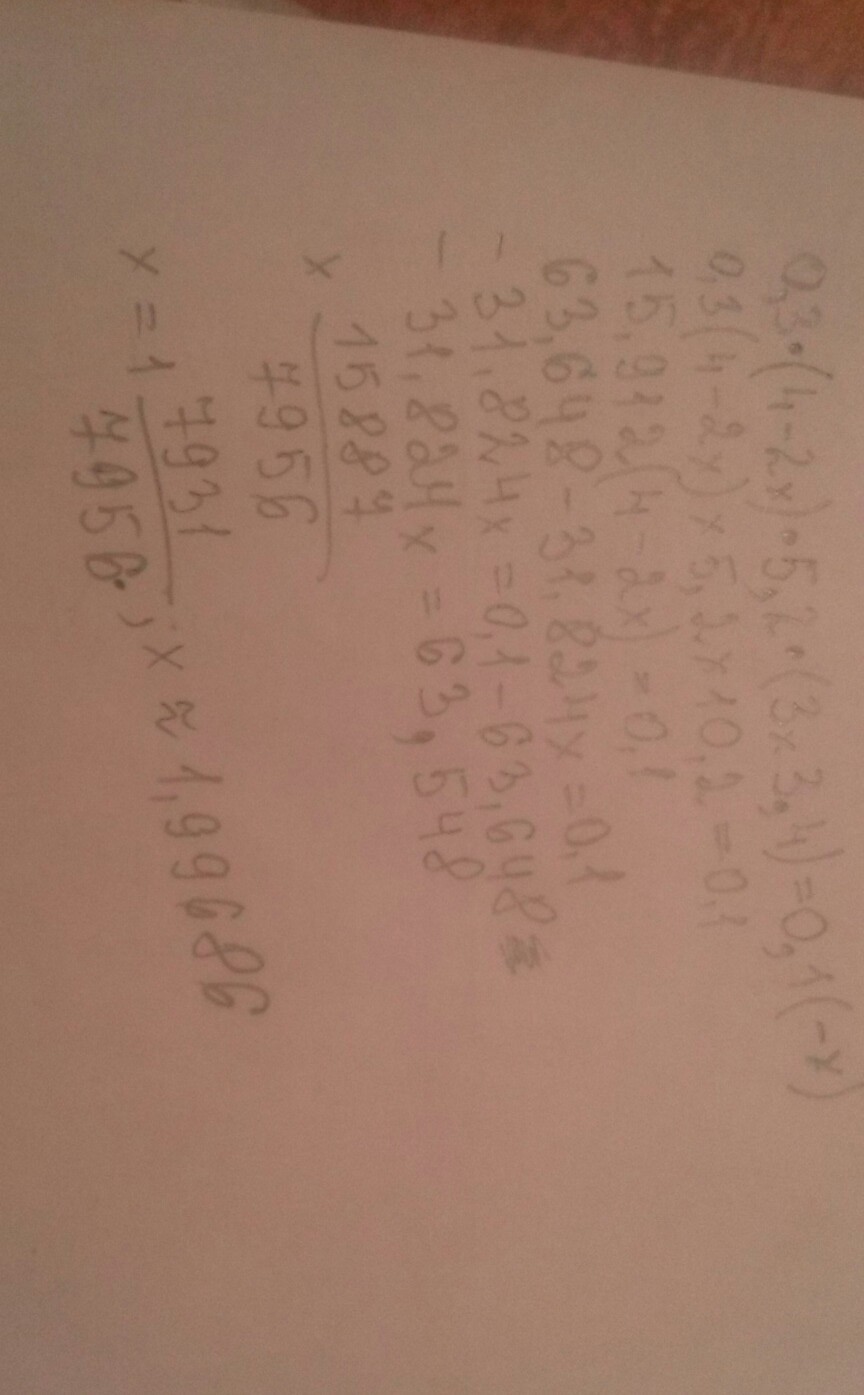 0,3·(4-2x)·5,2·(3x3,4)=0,1(-x)
0,3(4-2x)x5,2x10,2=0,1
15,912(4-2x)=0,1
63,648-31,824x=0,1
-31,824x=0,1-63,648
-31,824x=63,548
x 15887
7956
x=1 7931
7956; x≈1,99686